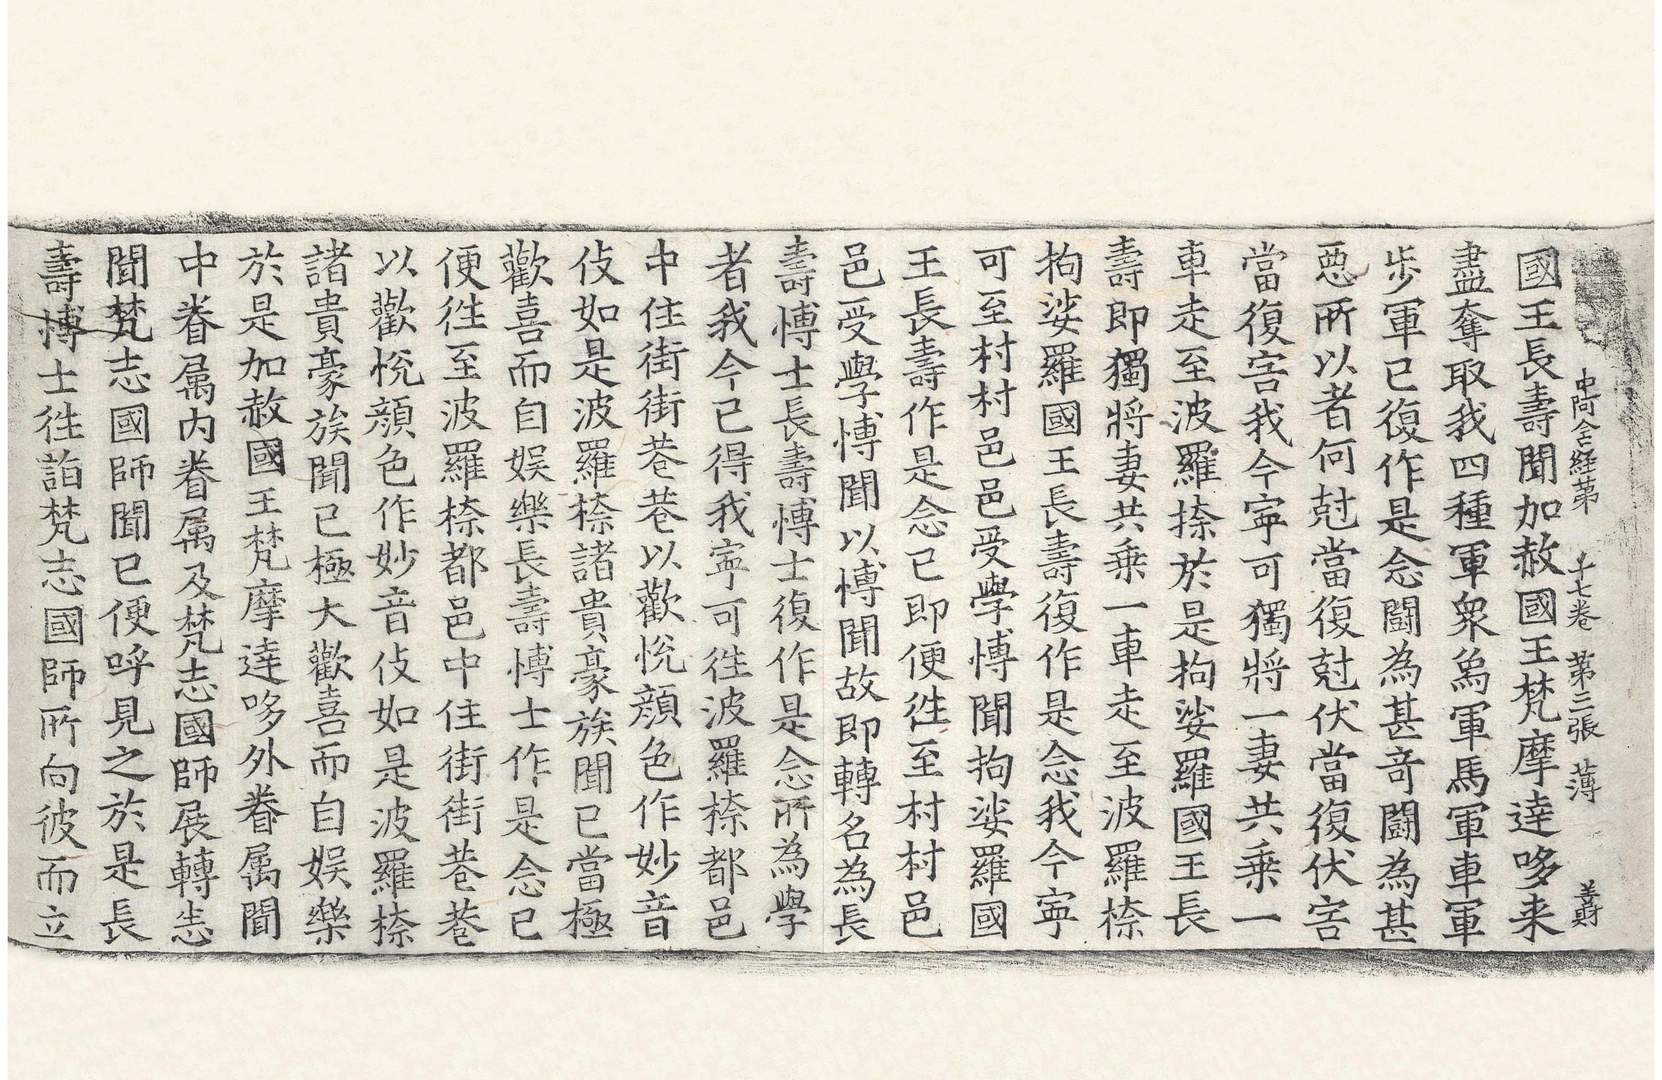 中阿含経第 十七卷 第三張 薄 善財
國王長壽聞加赦國王梵摩達哆来
盡奪取我四種軍衆象軍馬軍車軍
步軍已復作是念鬪為甚竒鬪為甚
惡所以者何尅當復尅伏當復伏害
當復害我今寧可獨將一妻共乗一
車走至波羅㮈於是拘娑羅國王長
壽即獨將妻共乗一車走至波羅㮈
拘娑羅國王長壽復作是念我今寧
可至村村邑邑受學博聞拘娑羅國
王長壽作是念已即便徃至村村邑
邑受學博聞以博聞故即轉名為長
壽博士長壽博士復作是念所為學
者我今已得我寧可徃波羅㮈都邑
中住街街巷巷以歡恱顔色作妙音
伎如是波羅㮈諸貴豪族聞已當極
歡喜而自娱樂長壽博士作是念已
便徃至波羅㮈都邑中住街街巷巷
以歡恱顔色作妙音伎如是波羅㮈
諸貴豪族聞已極大歡喜而自娱樂
於是加赦國王梵摩達哆外眷属聞
中眷属内眷属及梵志國師展轉悉
聞梵志國師聞已便呼見之於是長
壽博士徃詣梵志國師所向彼而立